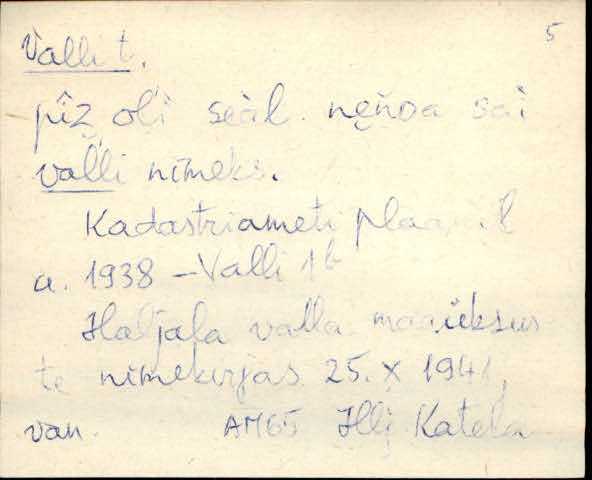 5
Valli t.
pìz oĺi seàl. neńda sai
vaĺli nimeks.
Kadastriameti plaanil
a. 1938 – Valli 1b
Haljala valla maaüksus-
te nimekirjas 25. X 1941
van. AM65 Hlj Katela